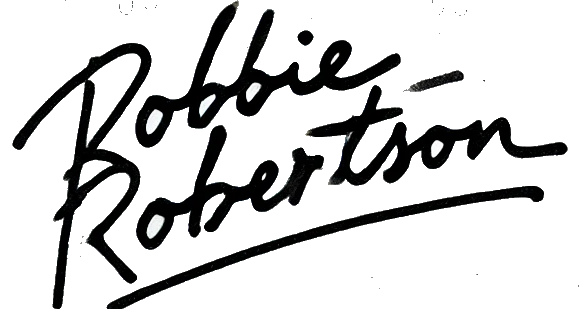 Robbie
Robertson